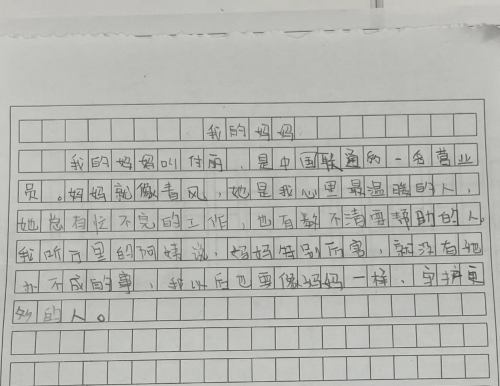 我的妈妈
我的妈妈叫付丽，是中国联通的一名营业
员。妈妈就像春风，她是我心里最温暖的人，
她总有忙不完的工作，也有数不清要帮助的人。
我听厅里的阿姨说，妈妈特别厉害，就没有她
办不成的事，我以后也要像妈妈一样，守护更
多的人。